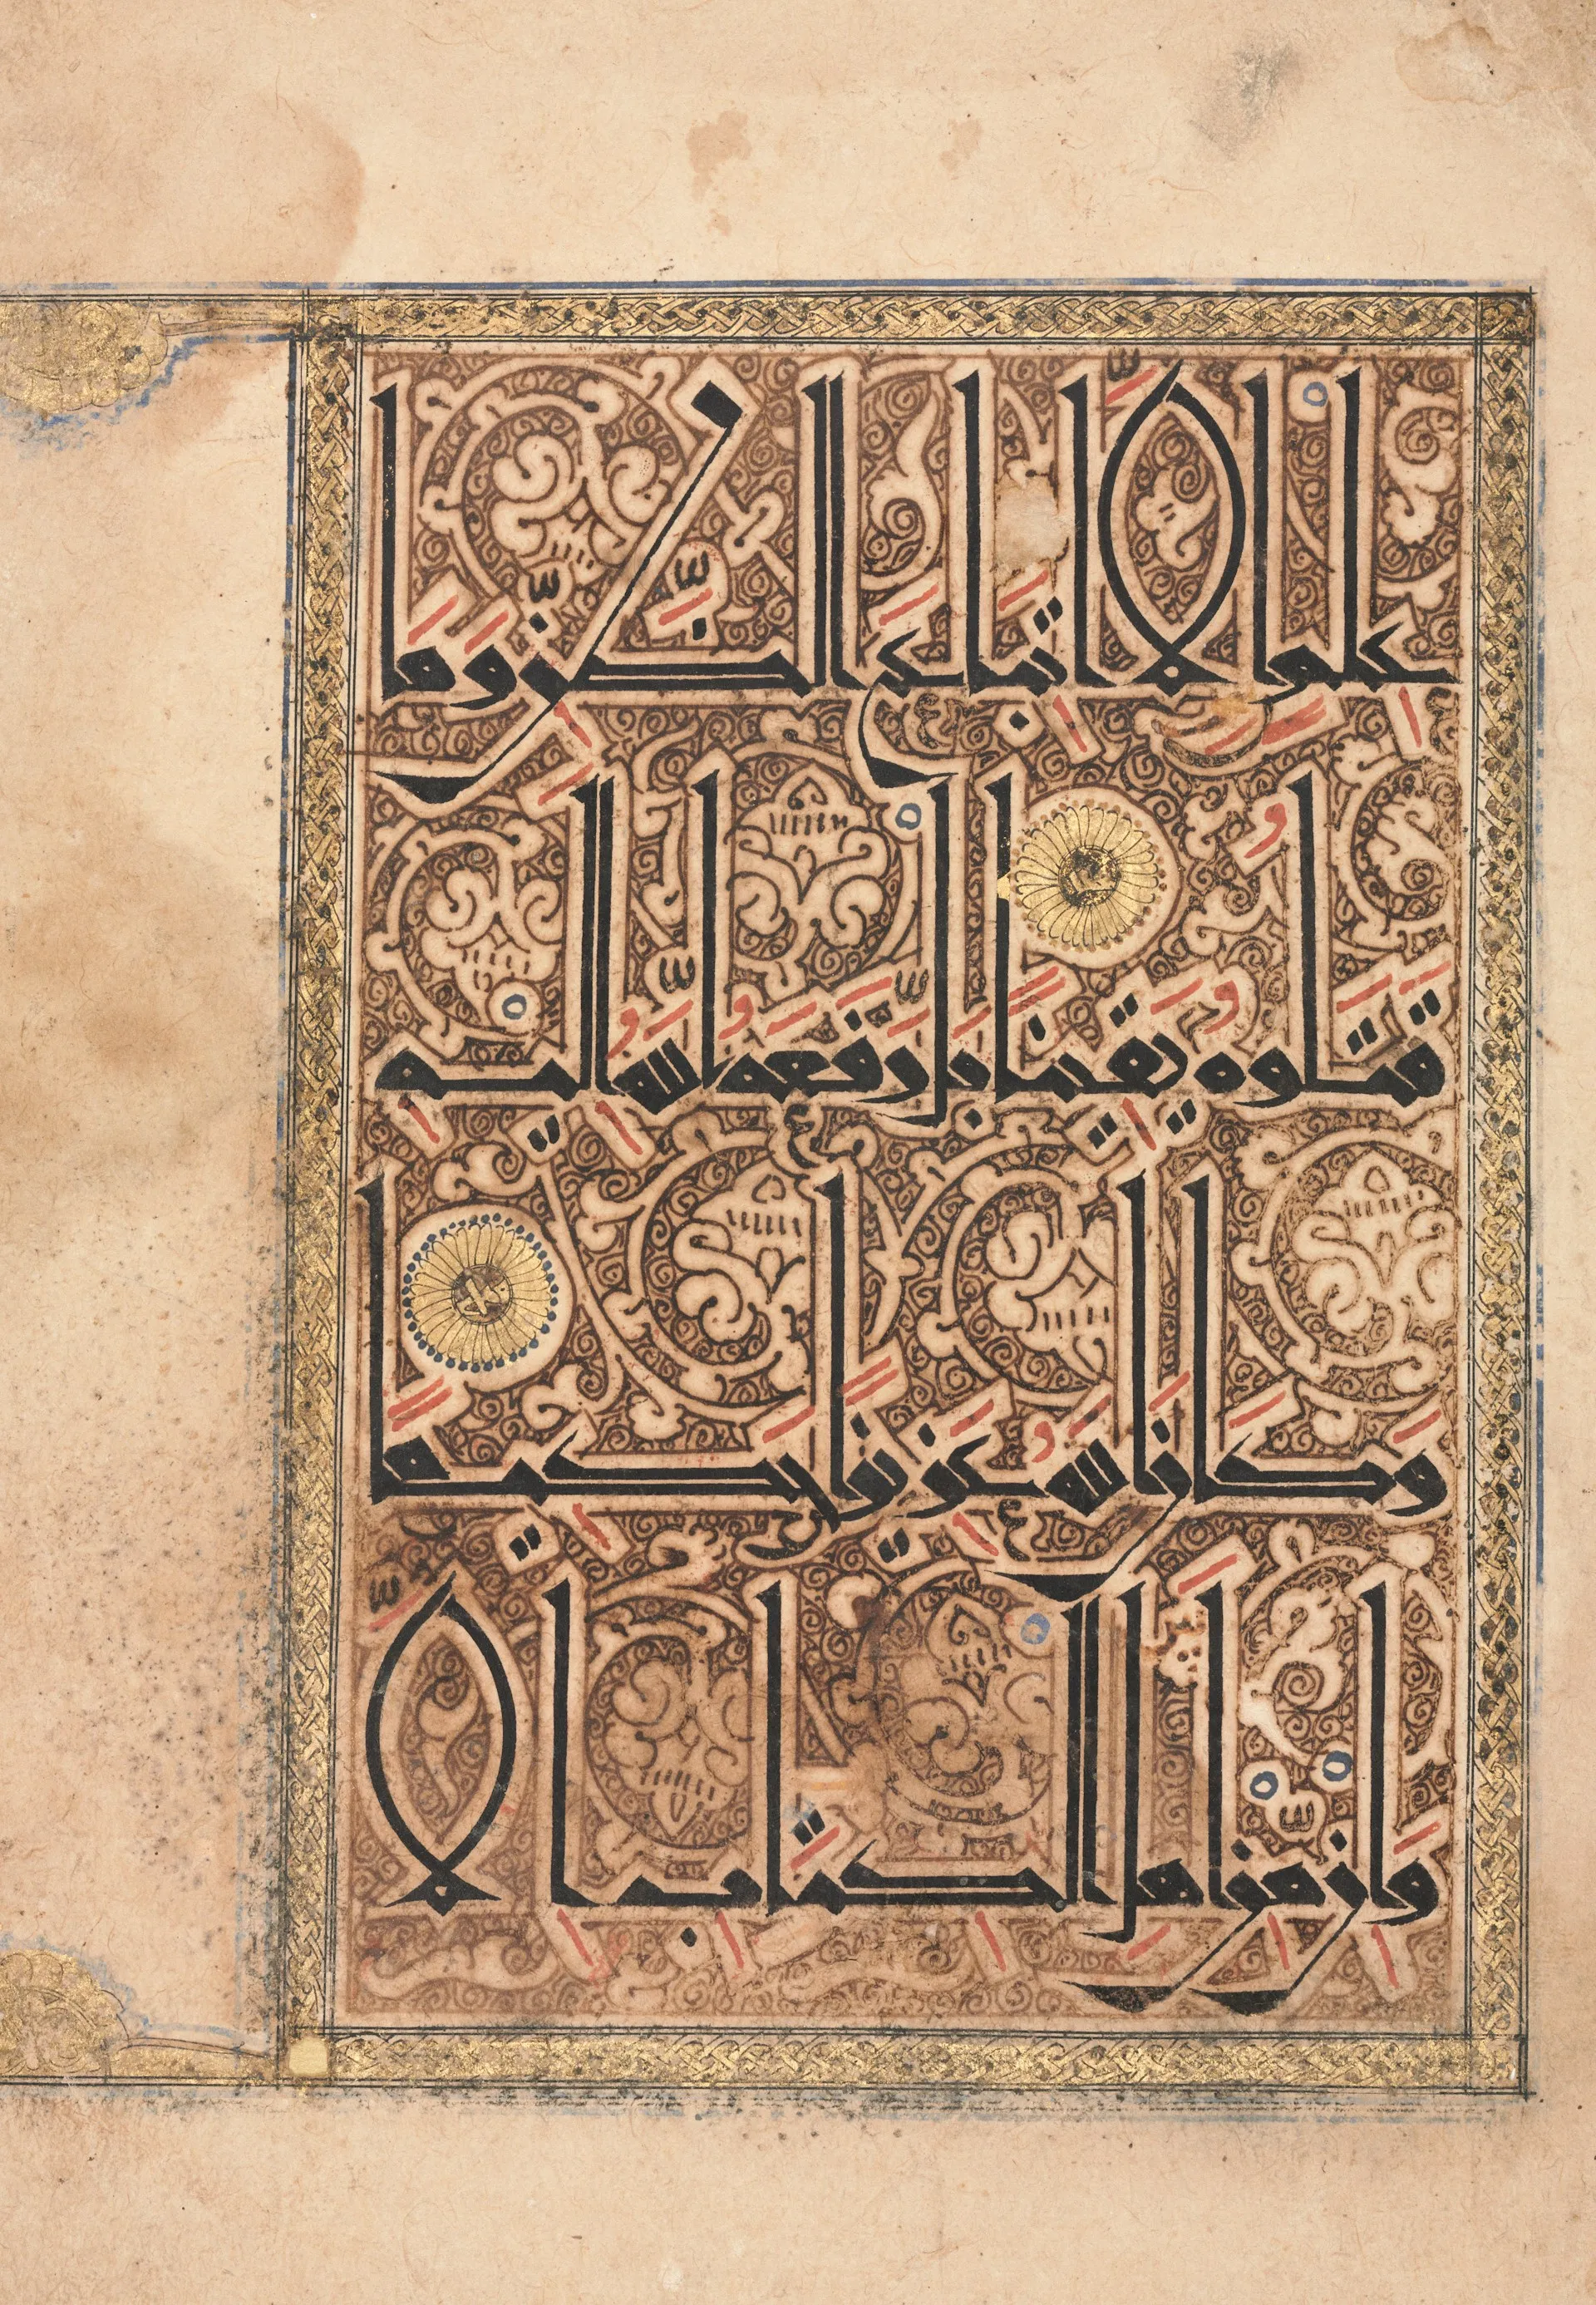 عِلْمٍ إِلَّا اتِّبَاعَ الظَّنِّ وَمَا
قَتَلُوهُ يَقِينًا بَلْ رَفَعَهُ اللَّهُ إِلَيْهِ
وَكَانَ اللَّهُ عَزِيزًا حَكِيمًا
وَإِنْ مِنْ أَهْلِ الْكِتَابِ إِلَّا